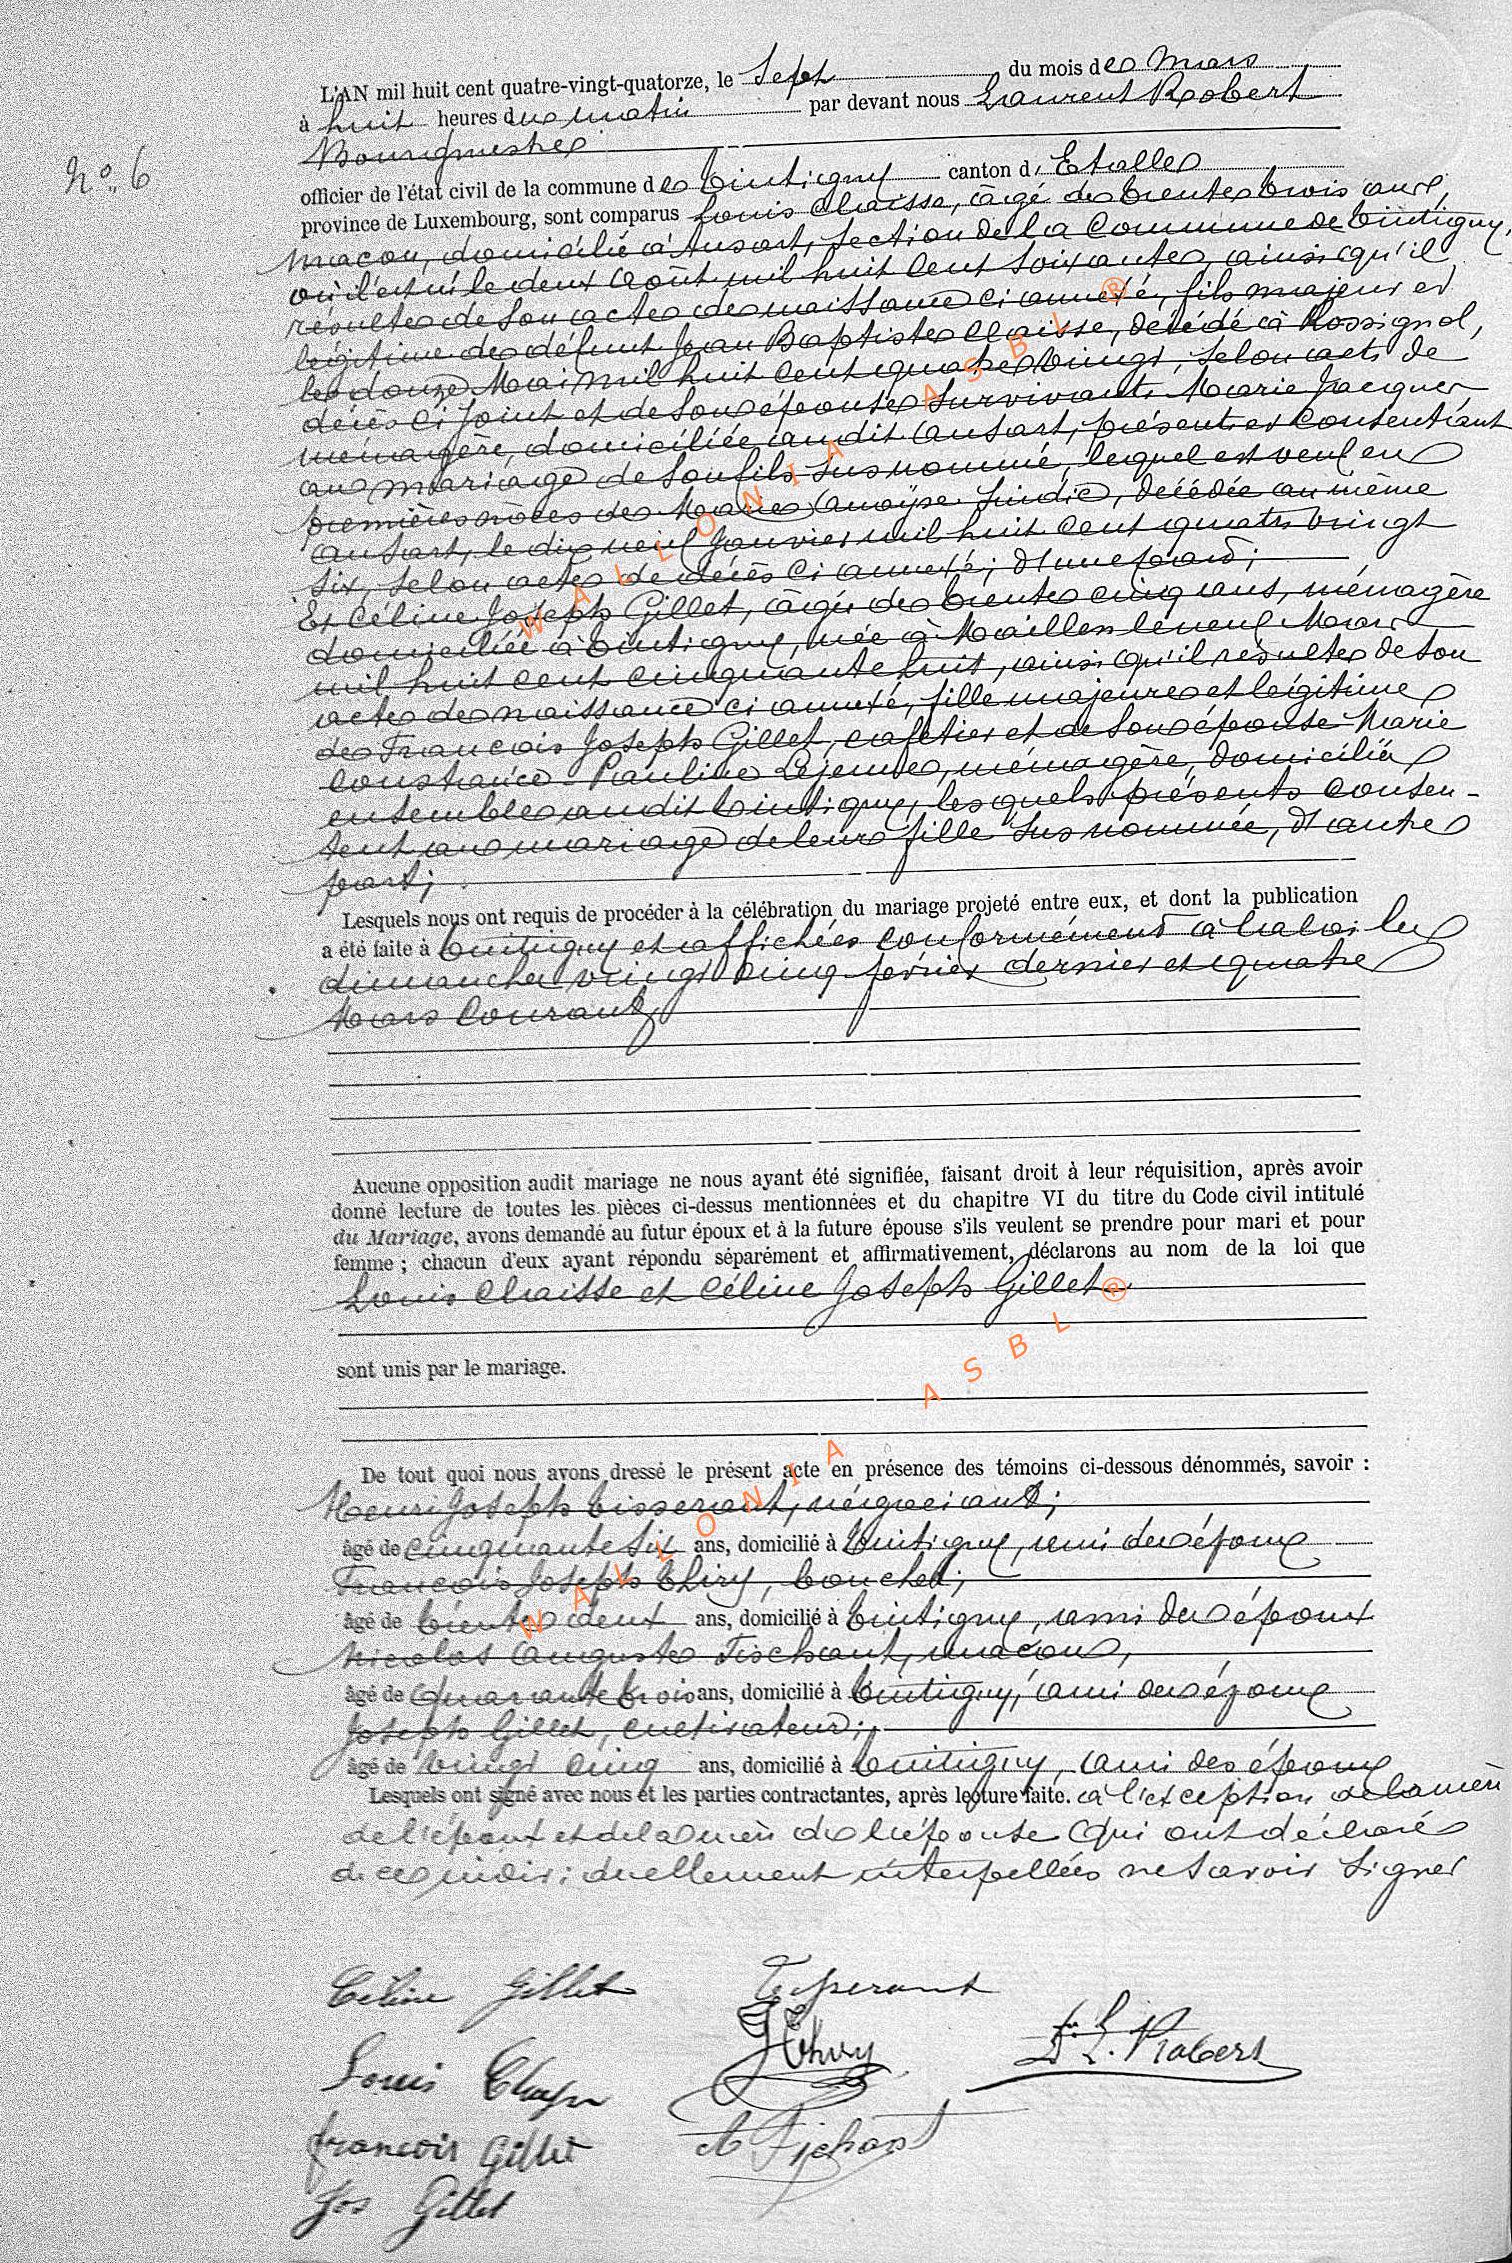 L'AN mil huit cent quatre-vingt-quatorze, le Sept du mois de Mars
à huit heures du matin par devant nous Laurent Robert
Bourgmestre
N° 6
officier de l'état civil de la commune de Tintigny canton d'Etalle
province de Luxembourg, sont comparus Louis Claisse, âgé de trente trois ans,
maçon, domicilié à Ansart, section de la Commune de Tintigny,
où il est né le deux Août mil huit cent soixante, ainsi qu'il
résulte de son acte de naissance ci annexé, fils majeur et
légitime de défunt Jean Baptiste Claisse, décédé à Rossignol,
le douze Mai mil huit cent quatre vingt, selon acte de
décès ci joint et de son épouse survivante Marie Jacques
ménagère, domiciliée audit Ansart, présente et consentiant
au mariage de son fils sus nommé, lequel est veuf en
premières nôces de Marie Sindic, décédée au même
Ansart, le dix neuf Janvier mil huit cent quatre vingt
six, selon acte de décès ci annexé; d'une part;
Et Céline Joseph Gillet, âgée de trente cinq ans, ménagère
domiciliée à Tintigny, née à Maillen le neuf Mars
mil huit cent cinquante huit, ainsi qu'il résulte de son
acte de naissance ci annexé, fille majeure et légitime
de François Joseph Gillet, cafetier et de son épouse Marie
Constance Pauline Lejeune, ménagère, domiciliés
ensemble audit Tintigny, lesquels présents consen-
tent au mariage de leur fille sus nommée, d'autre
part;
Lesquels nous ont requis de procéder à la célébration du mariage projeté entre eux, et dont la publication
a été faite à Tintigny et affichées conformément à la loi les
dimanches vingt cinq février dernier et quatre
Mars Courant,
Aucune opposition audit mariage ne nous ayant été signifiée, faisant droit à leur réquisition, après avoir
donné lecture de toutes les pièces ci-dessus mentionnées et du chapitre VI du titre du Code civil intitulé
du Mariage, avons demandé au futur époux et à la future épouse s'ils veulent se prendre pour mari et pour
femme ; chacun d'eux ayant répondu séparément et affirmativement, déclarons au nom de la loi que
Louis Claisse et Céline Joseph Gillet
sont unis par le mariage.
De tout quoi nous avons dressé le présent acte en présence des témoins ci-dessous dénommés, savoir :
Henri Joseph négociant;
âgé de cinquante six ans, domicilié à Tintigny, ami des époux
François Joseph Thiry, boucher;
âgé de trente deux ans, domicilié à Tintigny, ami des époux
Nicolas Auguste maçon,
âgé de quarante trois ans, domicilié à Tintigny, ami des époux
Joseph Gillet, cultivateur;
âgé de vingt cinq ans, domicilié à Tintigny, ami des époux
Lesquels ont signé avec nous et les parties contractantes, après lecture faite. à l'exception de la mère
de l'époux et de la mère de l'épouse qui ont déclaré
de ce indivi: duellement interpellées ne savoir signer
Céline Gillet
JThiry
Dr L. Robert
Louis
François Gillet
Jos Gillet
WALLONIA ASBL ®
WALLONIA ASBL ®